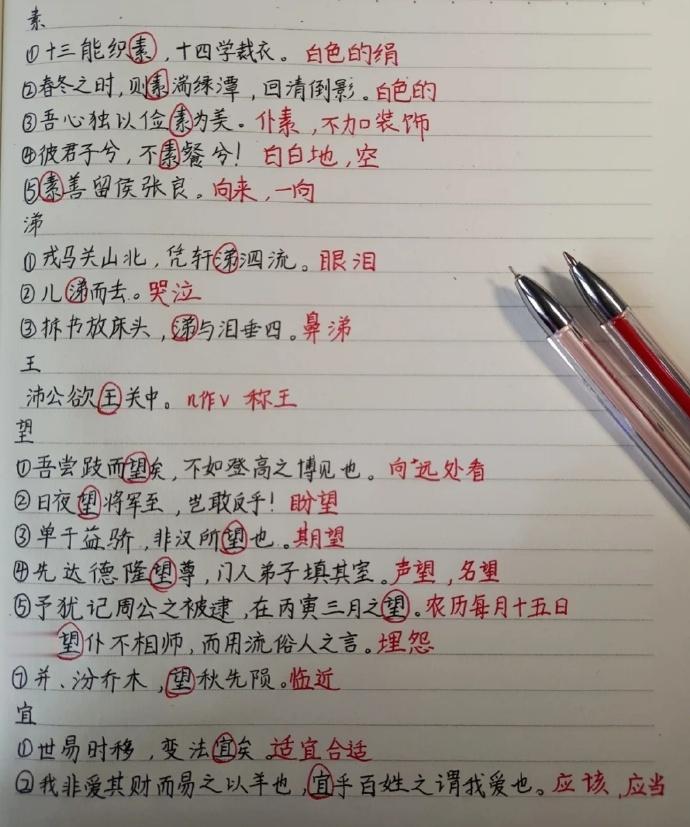 素
①十三能织素，十四学裁衣。白色的绢
②春冬之时，则素湍绿潭，回清倒影。白色的
③吾心独以俭素为美。仆素，不加装饰
④彼君子兮，不素餐兮！白白地，空
⑤素善留侯张良。向来，一向
涕
①戎马关山北，凭轩涕泗流。眼泪
②儿涕而去。哭泣
③拆书放床头，涕与泪垂四。鼻涕
王
沛公欲王关中。n作v 称王
望
①吾尝跂而望矣，不如登高之博见也。向远处看
②日夜望将军至，岂敢反乎！盼望
③单于益骄，非汉所望也。期望
④先达德隆望尊，门人弟子填其室。声望，名望
⑤予犹记周公之被逮，在丙寅三月之望。农历每月十五日
望仆不相师，而用流俗人之言。埋怨
⑦并、汾乔木，望秋先陨。临近
宜
①世易时移，变法宜矣。适宜合适
②我非爱其财而易之以羊也，宜乎百姓之谓我爱也。应该，应当